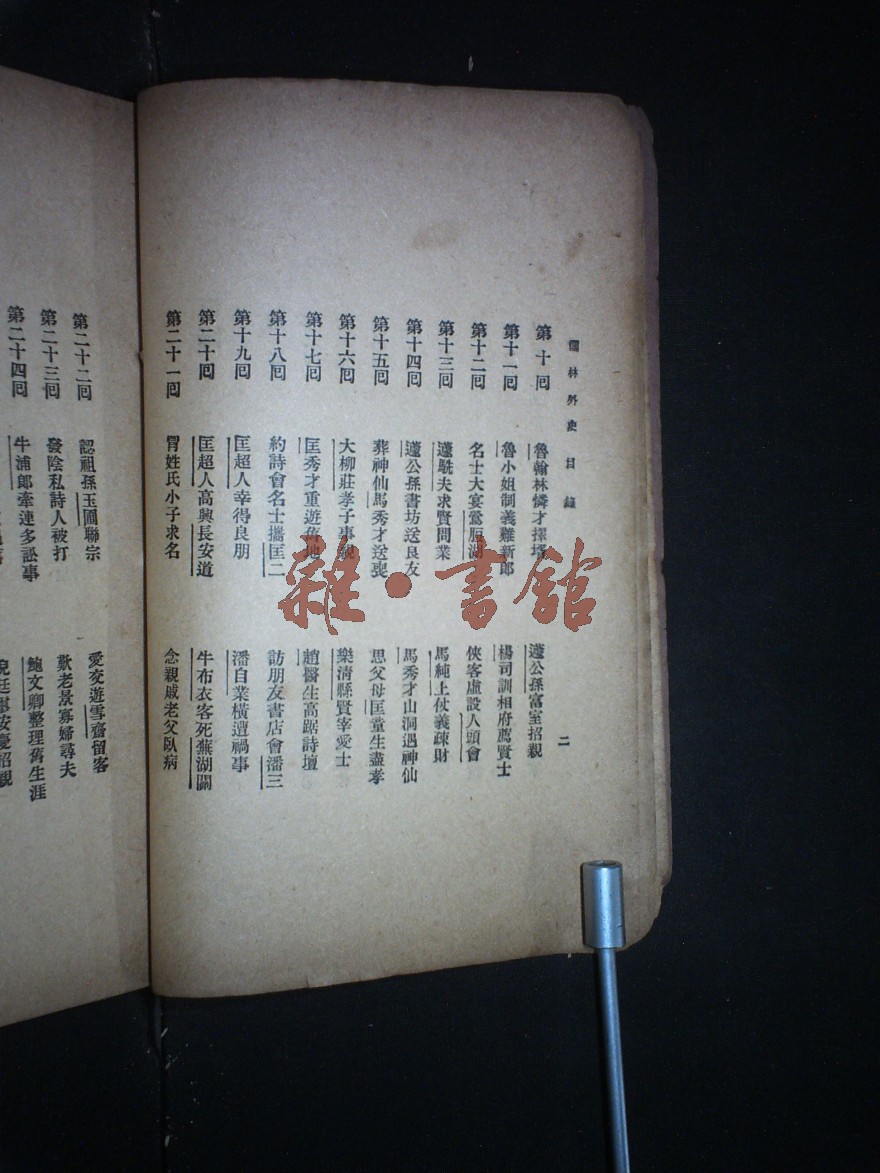 儒林外史目錄
二
第十回 魯翰林憐才擇壻 蘧公孫富室招親
第十一回 魯小姐制義難新郎 楊司訓相府薦賢士
第十二回 名士大宴鶯脰湖 俠客虛設人頭會
第十三回 蘧駪夫求賢問業 馬純上仗義疎財
第十四回 蘧公孫書坊送良友 馬秀才山洞遇神仙
第十五回 葬神仙馬秀才送喪 思父母匡童生盡孝
第十六回 大柳莊孝子事親 樂清縣賢宰愛士
第十七回 匡秀才重遊舊地 趙醫生高踞詩壇
第十八回 約詩會名士攜匡二 訪朋友書店會潘三
第十九回 匡超人幸得良朋 潘自業橫遭禍事
第二十回 匡超人高興長安道 牛布衣客死蕪湖關
第二十一回 冒姓氏小子求名 念親戚老父臥病
第二十二回 認祖孫玉圃聯宗 愛交遊雪齋留客
第二十三回 發陰私詩人被打 歎老景寡婦尋夫
第二十四回 牛浦郎牽連多訟事 鮑文卿整理舊生涯
雜·書館